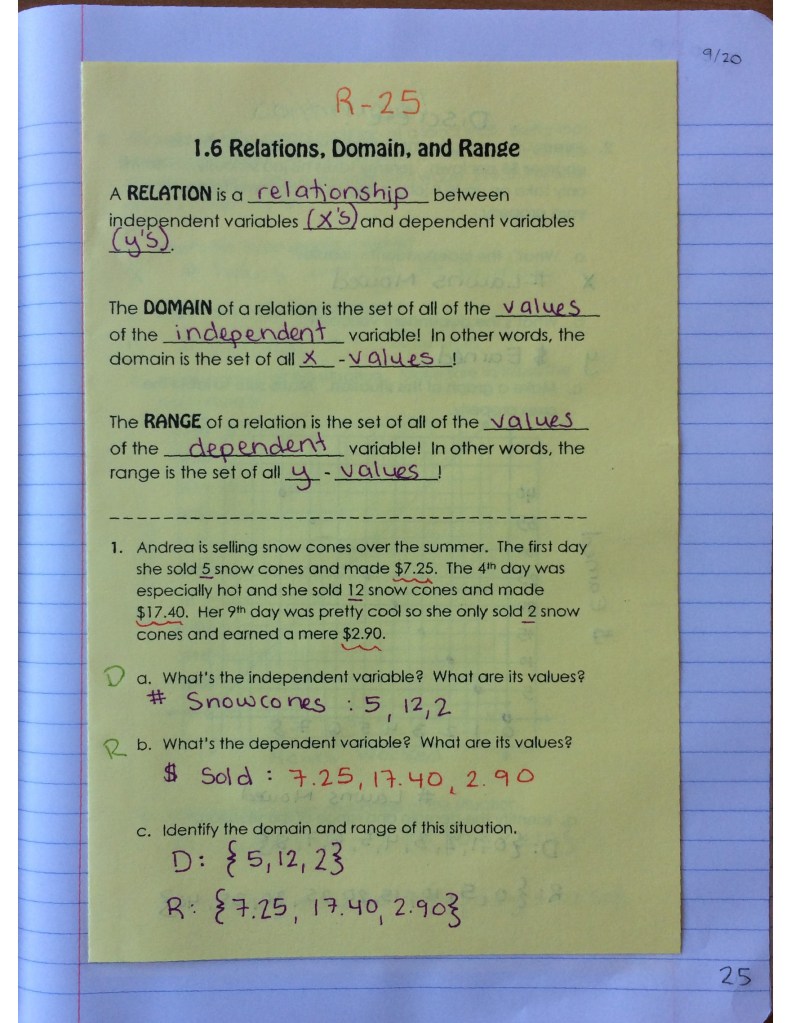 9/20
R-25
1.6 Relations, Domain, and Range
A RELATION is a relationship between
independent variables (x's) and dependent variables
(y's).
The DOMAIN of a relation is the set of all of the values
of the independent variable! In other words, the
domain is the set of all x - values !
The RANGE of a relation is the set of all of the values
of the dependent variable! In other words, the
range is the set of all y - values !
1. Andrea is selling snow cones over the summer. The first day
she sold 5 snow cones and made $7.25. The 4th day was
especially hot and she sold 12 snow cones and made
$17.40. Her 9th day was pretty cool so she only sold 2 snow
cones and earned a mere $2.90.
D a. What's the independent variable? What are its values?
# Snowcones : 5, 12, 2
R b. What's the dependent variable? What are its values?
$ Sold : 7.25, 17.40, 2.90
c. Identify the domain and range of this situation.
D: {5, 12, 2}
R: {7.25, 17.40, 2.90}
25